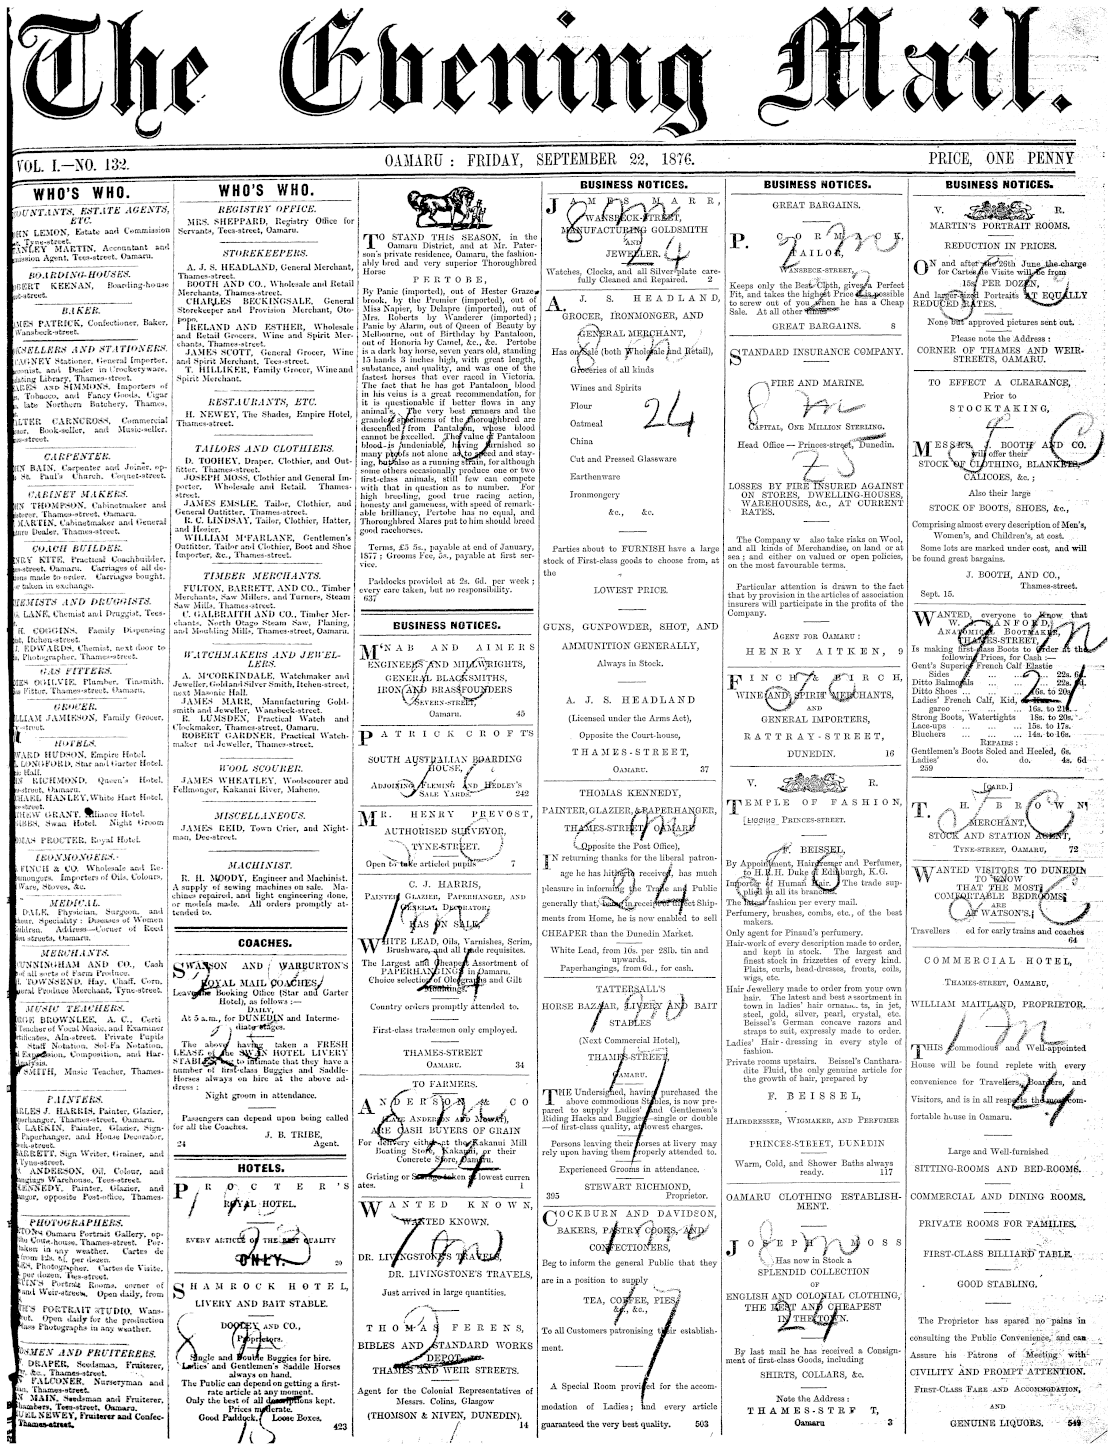 The Evening Mail.
VOL. I.—NO. 132.
OAMARU : FRIDAY, SEPTEMBER 22, 1876.
PRICE, ONE PENNY
WHO'S WHO.
OUNTANTS, ESTATE AGENTS,
ETC.
LEMON, Estate and Commission
Tyne-street.
MARTIN, Accountant and
Agent, Tees-street, Oamaru.
BOARDING-HOUSES.
KEENAN, Boarding-house
BAKER.
PATRICK, Confectioner, Baker,
Wansbeck-street.
KSELLERS AND STATIONERS.
Stationer, General Importer,
and Dealer in Crockeryware,
Library, Thames-street.
AND SIMMONS, Importers of
Tobacco, and Fancy Goods, Cigar
late Northern Butchery, Thames.
CARNCROSS, Commercial
Book-seller, and Music-seller.
CARPENTER.
BAIN, Carpenter and Joiner, op-
St. Paul's Church, Coquet-street.
CABINET MAKERS.
THOMPSON, Cabinetmaker and
Thames-street, Oamaru.
MARTIN, Cabinetmaker and General
Dealer, Thames-street.
COACH BUILDER.
KITE, Practical Coachbuilder,
Thames-street. Carriages of all de-
made to order. Carriages bought,
taken in exchange.
HEMISTS AND DRUGGISTS.
LANE, Chemist and Druggist, Tees-
H. COGGINS, Family Dispensing
Itchen-street.
EDWARDS, Chemist, next door to
Photographer, Thames-street.
GAS FITTERS.
OGILVIE, Plumber, Tinsmith,
Fitter, Thames-street, Oamaru.
GROCER.
JAMIESON, Family Grocer,
HOTELS.
HUDSON, Empire Hotel.
LONGFORD, Star and Garter Hotel.
Hall.
RICHMOND, Queen's Hotel,
Oamaru.
HANLEY, White Hart Hotel,
GRANT, Alliance Hotel.
Swan Hotel. Night Groom
PROCTER, Royal Hotel.
IRONMONGERS.
FINCH & CO. Wholesale and Re-
Importers of Oils, Colours,
Ware, Stoves, &c.
MEDICAL.
DALE, Physician, Surgeon, and
Speciality: Diseases of Women
Address—Corner of Reed
streets, Oamaru.
MERCHANTS.
CUNNINGHAM AND CO., Cash
of all sorts of Farm Produce.
TOWNSEND, Hay, Chaff, Corn,
Produce Merchant, Tyne-street.
MUSIC TEACHERS.
BROWNLEE, A. C., Certi
Teacher of Vocal Music, and Examiner
Aln-street. Private Pupils
Staff Notation, Sol-Fa Notation,
Expression, Composition, and Har-
SMITH, Music Teacher, Thames-
PAINTERS.
J. HARRIS, Painter, Glazier,
Thames-street, Oamaru.
LARKIN, Painter, Glazier, Sign-
Paperhanger, and House Decorator,
Sign Writer, Grainer, and
Tyne-street.
ANDERSON, Oil, Colour, and
Warehouse, Tees-street.
KENNEDY, Painter, Glazier, and
opposite Post-office, Thames-
PHOTOGRAPHERS.
Oamaru Portrait Gallery, op-
Court-house, Thames-street. Por-
taken in any weather. Cartes de
from 12s. 6d. per dozen.
Photographer. Cartes de Visite,
per dozen, Tees-street.
Portrait Rooms, corner of
and Weir-streets. Open daily, from
PORTRAIT STUDIO, Wans-
Open daily for the production
Photographs in any weather.
SMEN AND FRUITERERS.
DRAPER, Seedsman, Fruiterer,
&c., Thames-street.
FALCONER, Nurseryman and
Thames-street.
MAIN, Seedsman and Fruiterer,
Tees-street, Oamaru.
NEWEY, Fruiterer and Confec-
Thames-street.
WHO'S WHO.
REGISTRY OFFICE.
MRS. SHEPPARD, Registry Office for
Servants, Tees-street, Oamaru.
STOREKEEPERS.
A. J. S. HEADLAND, General Merchant,
Thames-street.
BOOTH AND CO., Wholesale and Retail
Merchants, Thames-street.
CHARLES BECKINGSALE, General
Storekeeper and Provision Merchant, Oto-
Pops.
IRELAND AND ESTHER, Wholesale
and Retail Grocers, Wine and Spirit Mer-
chants, Thames-street.
JAMES SCOTT, General Grocer, Wine
and Spirit Merchant, Tees-street.
T. HILLIKER, Family Grocer, Wine and
Spirit Merchant.
RESTAURANTS, ETC.
H. NEWEY, The Shades, Empire Hotel,
Thames-street.
TAILORS AND CLOTHIERS.
D. TOOHEY, Draper, Clothier, and Out-
fitter, Thames-street.
JOSEPH MOSS, Clothier and General Im-
porter, Wholesale and Retail, Thames-
street.
JAMES EMSLIE, Tailor, Clothier, and
General Outfitter, Thames-street.
R. C. LINDSAY, Tailor, Clothier, Hatter,
and Hosier.
WILLIAM M'FARLANE, Gentlemen's
Outfitter, Tailor and Clothier, Boot and Shoe
Importer, &c., Thames-street.
TIMBER MERCHANTS.
FULTON, BARRETT, AND CO., Timber
Merchants, Saw Millers, and Turners, Steam
Saw Mills, Thames-street.
C. GALBRAITH AND CO., Timber Mer-
chants, North Otago Steam Saw, Planing,
and Moulding Mills, Thames-street, Oamaru.
WATCHMAKERS AND JEWEL-
LERS.
A. M'CORKINDALE, Watchmaker and
Jeweller, Gold and Silver Smith, Itchen-street,
next Masonic Hall.
JAMES MARR, Manufacturing Gold-
smith and Jeweller, Wansbeck-street.
R. LUMSDEN, Practical Watch and
Clockmaker, Thames-street, Oamaru.
ROBERT GARDNER, Practical Watch-
maker nd Jeweller, Thames-street.
WOOL SCOURER.
JAMES WHEATLEY, Woolscourer and
Fellmonger, Kakanui River, Maheno.
MISCELLANEOUS.
JAMES REID, Town Crier, and Night-
man, Dee-street.
MACHINIST.
R. H. MOODY, Engineer and Machinist.
A supply of sewing machines on sale. Ma-
chines repaired, and light engineering done,
or models made. All orders promptly at-
tended to.
COACHES.
SWANSON AND WARBURTON'S
ROYAL MAIL COACHES,
Leave the Booking Office (Star and Garter
Hotel), as follows :—
DAILY,
At 5 a.m., for DUNEDIN and Interme-
diate stages.
The above having taken a FRESH
LEASE of the SWAN HOTEL LIVERY
STABLES beg to intimate that they have a
number of first-class Buggies and Saddle-
Horses always on hire at the above ad-
dress :
Night groom in attendance.
Passengers can depend upon being called
for all the Coaches.
J. B. TRIBE,
24 Agent.
HOTELS.
PROCTER'S
ROYAL HOTEL.
EVERY ARTICLE OF THE BEST QUALITY
ONLY.
20
SHAMROCK HOTEL,
LIVERY AND BAIT STABLE.
DOOLEY AND CO.,
Proprietors.
Single and Double Buggies for hire.
Ladies' and Gentlemen's Saddle Horses
always on hand.
The Public can depend on getting a first-
rate article at any moment.
Only the best of all descriptions kept.
Prices moderate.
Good Paddock. Loose Boxes.
423
TO STAND THIS SEASON, in the
Oamaru District, and at Mr. Pater-
son's private residence, Oamaru, the fashion-
ably bred and very superior Thoroughbred
Horse
PERTOBE,
By Panic (imported), out of Hester Graze-
brook, by the Premier (imported), out of
Miss Napier, by Delapre (imported), out of
Mrs. Roberts by Wanderer (imported) ;
Panic by Alarm, out of Queen of Beauty by
Melbourne, out of Birthday by Pantaloon,
out of Honoria by Camel, &c., &c. Pertobe
is a dark bay horse, seven years old, standing
15 hands 3 inches high, with great length,
substance, and quality, and was one of the
fastest horses that ever raced in Victoria.
The fact that he has got Pantaloon blood
in his veins is a great recommendation, for
it is questionable if better flows in any
animal's. The very best runners and the
grandest specimens of the thoroughbred are
descended from Pantaloon, whose blood
cannot be excelled. The value of Pantaloon
blood is undeniable, having furnished so
many proofs not alone as to speed and stay-
ing, but also as a running strain, for although
some others occasionally produce one or two
first-class animals, still few can compete
with that in question as to number. For
high breeding, good true racing action,
honesty and gameness, with speed of remark-
able brilliancy, Pertobe has no equal, and
Thoroughbred Mares put to him should breed
good racehorses.
Terms, £5 5s., payable at end of January,
1877 ; Grooms Fee, 5s., payable at first ser-
vice.
Paddocks provided at 2s. 6d. per week ;
every care taken, but no responsibility.
637
BUSINESS NOTICES.
M'NAB AND AIMERS
ENGINEERS AND MILLWRIGHTS,
GENERAL BLACKSMITHS,
IRON AND BRASSFOUNDERS
SEVERN-STREET,
Oamaru. 45
PATRICK CROFT'S
SOUTH AUSTRALIAN BOARDING
HOUSE,
ADJOINING FLEMING AND HEDLEY'S
SALE YARDS. 242
MR. HENRY PREVOST,
AUTHORISED SURVEYOR,
TYNE-STREET.
Open to take articled pupils 7
C. J. HARRIS,
PAINTER, GLAZIER, PAPERHANGER, AND
GENERAL DECORATOR,
HAS ON SALE,
WHITE LEAD, Oils, Varnishes, Scrim,
Brushware, and all trade requisites.
The Largest and Cheapest Assortment of
PAPERHANGINGS in Oamaru.
Choice selection of Oleographs and Gilt
Mouldings.
Country orders promptly attended to.
First-class tradesmen only employed.
THAMES-STREET
OAMARU. 34
TO FARMERS.
ANDERSON & CO
(LATE ANDERSON AND MOWAT),
ARE CASH BUYERS OF GRAIN
For delivery either at the Kakanui Mill
Boating Store, Kakanui, or their
Concrete Store, Oamaru.
Gristing or Storage taken at lowest curren
ates. 1
WANTED KNOWN,
WANTED KNOWN.
DR. LIVINGSTONE'S TRAVELS,
DR. LIVINGSTONE'S TRAVELS,
Just arrived in large quantities.
THOMAS FERENS,
BIBLES AND STANDARD WORKS
DEPOT,
THAMES AND WEIR STREETS.
Agent for the Colonial Representatives of
Messrs. Colins, Glasgow
(THOMSON & NIVEN, DUNEDIN).
14
BUSINESS NOTICES.
JAMES MARR,
WANSBECK-STREET,
MANUFACTURING GOLDSMITH
AND
JEWELLER.
Watches, Clocks, and all Silver plate care-
fully Cleaned and Repaired. 2
A. J. S. HEADLAND,
GROCER, IRONMONGER, AND
GENERAL MERCHANT,
Has on Sale (both Wholesale and Retail),
Groceries of all kinds
Wines and Spirits
Flour
Oatmeal
China
Cut and Pressed Glassware
Earthenware
Ironmongery
&c., &c.
Parties about to FURNISH have a large
stock of First-class goods to choose from, at
the
LOWEST PRICE.
GUNS, GUNPOWDER, SHOT, AND
AMMUNITION GENERALLY,
Always in Stock.
A. J. S. HEADLAND
(Licensed under the Arms Act),
Opposite the Court-house,
THAMES-STREET,
OAMARU. 37
THOMAS KENNEDY,
PAINTER, GLAZIER, & PAPERHANGER,
THAMES-STREET, OAMARU
(Opposite the Post Office),
IN returning thanks for the liberal patron-
age he has hitherto received, has much
pleasure in informing the Trade and Public
generally that, having received direct Ship-
ments from Home, he is now enabled to sell
CHEAPER than the Dunedin Market.
White Lead, from 10s. per 28lb. tin and
upwards.
Paperhangings, from 6d., for cash.
TATTERSALL'S
HORSE BAZAAR, LIVERY AND BAIT
STABLES
(Next Commercial Hotel),
THAMES-STREET,
OAMARU.
THE Undersigned, having purchased the
above commodious Stables, is now pre-
pared to supply Ladies' and Gentlemen's
Riding Hacks and Buggies, single or double
—of first-class quality, at lowest charges.
Persons leaving their horses at livery may
rely upon having them properly attended to.
Experienced Grooms in attendance.
STEWART RICHMOND,
395 Proprietor.
COCKBURN AND DAVIDSON,
BAKERS, PASTRY COOKS, AND
CONFECTIONERS,
Beg to inform the general Public that they
are in a position to supply
TEA, COFFEE, PIES,
&c., &c.,
To all Customers patronising their establish-
ment.
A Special Room provided for the accom-
modation of Ladies ; and every article
guaranteed the very best quality. 503
BUSINESS NOTICES.
GREAT BARGAINS.
P. CORMACK,
TAILOR,
WANSBECK-STREET,
Keeps only the Best Cloth, gives a Perfect
Fit, and takes the highest Price it is possible
to screw out of you when he has a Cheap
Sale. At all other times
GREAT BARGAINS. 8
STANDARD INSURANCE COMPANY.
FIRE AND MARINE.
CAPITAL, ONE MILLION STERLING.
Head Office — Princes-street, Dunedin.
LOSSES BY FIRE INSURED AGAINST
ON STORES, DWELLING-HOUSES,
WAREHOUSES, &c., AT CURRENT
RATES.
The Company w also take risks on Wool,
and all kinds of Merchandise, on land or at
sea ; and either on valued or open policies,
on the most favourable terms.
Particular attention is drawn to the fact
that by provision in the articles of association
insurers will participate in the profits of the
Company.
AGENT FOR OAMARU :
HENRY AITKEN, 9
FINCH & BIRCH,
WINE AND SPIRIT MERCHANTS,
AND
GENERAL IMPORTERS,
RATTRAY-STREET,
DUNEDIN. 16
V. R.
TEMPLE OF FASHION,
PRINCES-STREET.
F. BEISSEL,
By Appointment, Hairdresser and Perfumer,
to H.R.H. Duke of Edinburgh, K.G.
Importer of Human Hair. The trade sup-
plied at all its branches.
The latest fashion per every mail.
Perfumery, brushes, combs, etc., of the best
makers.
Only agent for Pinaud's perfumery.
Hair-work of every description made to order,
and kept in stock. The largest and
finest stock in frizzettes of every kind.
Plaits, curls, head-dresses, fronts, coils,
wigs, etc.
Hair Jewellery made to order from your own
hair. The latest and best assortment in
town in ladies' hair ornaments, in jet,
steel, gold, silver, pearl, crystal, etc.
Beissel's German concave razors and
straps to suit, expressly made to order.
Ladies' Hair-dressing in every style of
fashion.
Private rooms upstairs. Beissel's Canthara-
dite Fluid, the only genuine article for
the growth of hair, prepared by
F. BEISSEL,
HAIRDRESSER, WIGMAKER, AND PERFUMER
PRINCES-STREET, DUNEDIN
Warm, Cold, and Shower Baths always
ready. 117
OAMARU CLOTHING ESTABLISH-
MENT.
JOSEPH MOSS
Has now in Stock a
SPLENDID COLLECTION
OF
ENGLISH AND COLONIAL CLOTHING,
THE BEST AND CHEAPEST
IN THE TOWN.
By last mail he has received a Consign-
ment of first-class Goods, including
SHIRTS, COLLARS, &c.
Note the Address :
THAMES-STREET,
Oamaru 3
BUSINESS NOTICES.
V. R.
MARTIN'S PORTRAIT ROOMS.
REDUCTION IN PRICES.
ON and after the 26th June the charge
for Cartes de Visite will be from
15s. PER DOZEN,
And larger-sized Portraits AT EQUALLY
REDUCED RATES.
None but approved pictures sent out.
Please note the Address :
CORNER OF THAMES AND WEIR-
STREETS, OAMARU.
TO EFFECT A CLEARANCE,
Prior to
STOCKTAKING,
MESSRS. J. BOOTH AND CO.
will offer their
STOCK OF CLOTHING, BLANKETS,
CALICOES, &c. ;
Also their large
STOCK OF BOOTS, SHOES, &c.,
Comprising almost every description of Men's,
Women's, and Children's, at cost.
Some lots are marked under cost, and will
be found great bargains.
J. BOOTH, AND CO.,
Thames-street.
Sept. 15.
WANTED, everyone to know that
W. SANFORD,
ANATOMICAL BOOTMAKER,
THAMES-STREET,
Is making first-class Boots to Order at the
following Prices, for Cash :—
Gent's Superior French Calf Elastic
Sides ... ... ... 22s. 6d.
Ditto Balmorals ... ... 22s. 6d.
Ditto Shoes ... ... 16s. to 20s.
Ladies' French Calf, Kid,
garoo ... ... 16s. to 21s.
Strong Boots, Watertights 18s. to 20s.
Lace-ups ... ... 15s. to 17s.
Bluchers ... ... 14s. to 16s.
REPAIRS :
Gentlemen's Boots Soled and Heeled, 6s.
Ladies' do. do. 4s. 6d
259
[CARD.]
T. H. BROWN
MERCHANT,
STOCK AND STATION AGENT,
TYNE-STREET, OAMARU, 72
WANTED VISITORS TO DUNEDIN
TO KNOW
THAT THE MOST
COMFORTABLE BEDROOMS
ARE
AT WATSON'S.
Travellers ed for early trains and coaches
64
COMMERCIAL HOTEL,
THAMES-STREET, OAMARU,
WILLIAM MAITLAND, PROPRIETOR.
THIS Commodious and Well-appointed
House will be found replete with every
convenience for Travellers, Boarders, and
Visitors, and is in all respects the most com-
fortable house in Oamaru.
Large and Well-furnished
SITTING-ROOMS AND BED-ROOMS.
COMMERCIAL AND DINING ROOMS.
PRIVATE ROOMS FOR FAMILIES.
FIRST-CLASS BILLIARD TABLE.
GOOD STABLING.
The Proprietor has spared no pains in
consulting the Public Convenience, and can
Assure his Patrons of Meeting with
CIVILITY AND PROMPT ATTENTION.
FIRST-CLASS FARE AND ACCOMMODATION,
AND
GENUINE LIQUORS. 549